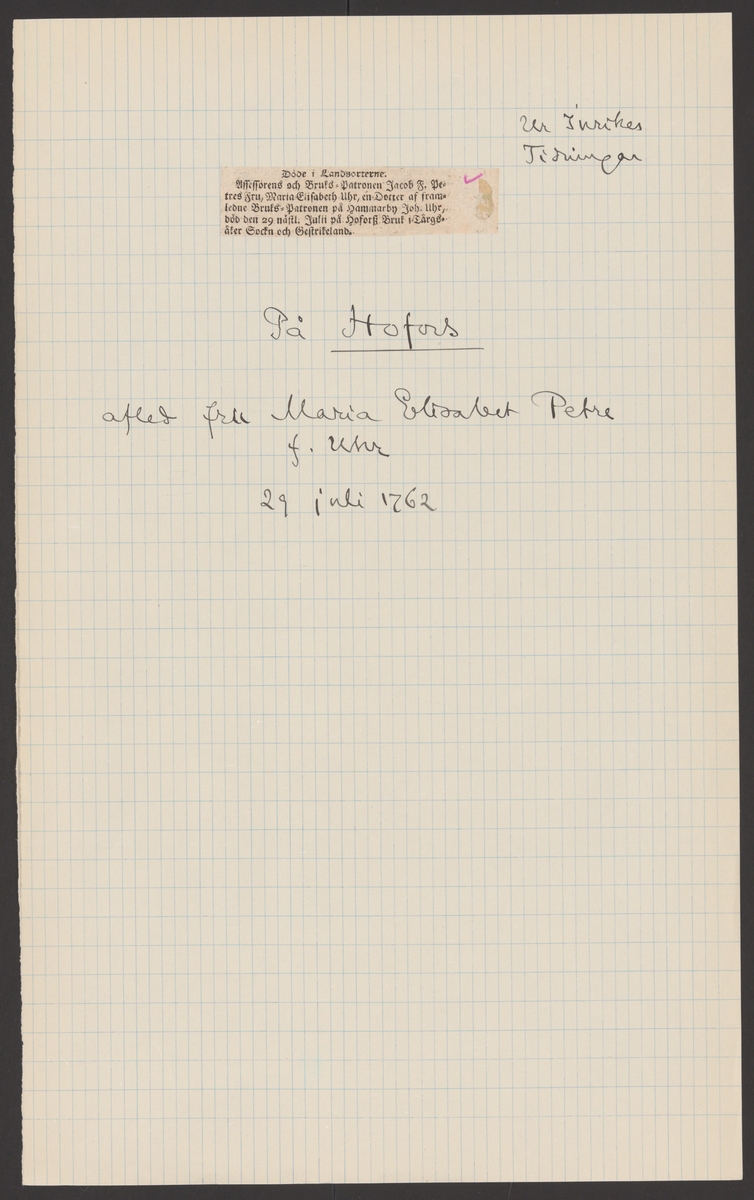 Ur Inrikes
Tidningar
Döde i Landsorterne.
Assessorens och Bruks-Patronen Jacob F. Pe-
tres Fru, Maria Elisabeth Uhr, en Dotter af fram-
ledne Bruks-Patronen på Hammarby Joh. Uhr,
död den 29 nästl. Julii på Hoforß Bruk i Târgs-
åker Sockn och Gestrikeland.
På Hofors
afled fru Maria Elisabet Petre
f. Uhr
29 juli 1762